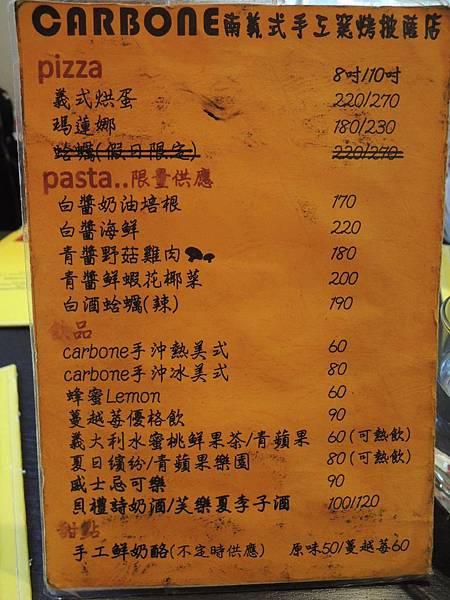 CARBONE南義式手工窯烤披薩店
pizza 8吋/10吋
義式烘蛋 220/270
瑪蓮娜 180/230
蛤蠣(假日限定) 220/270
pasta..限量供應
白醬奶油培根 170
白醬海鮮 220
青醬野菇雞肉 180
青醬鮮蝦花椰菜 200
白酒蛤蠣(辣) 190
飲品
carbone手沖熱美式 60
carbone手沖冰美式 80
蜂蜜Lemon 60
蔓越莓優格飲 90
義大利水蜜桃鮮果茶/青蘋果 60(可熱飲)
夏日繽紛/青蘋果樂園 80(可熱飲)
威士忌可樂 90
貝禮詩奶酒/芙樂夏李子酒 100/120
甜點
手工鮮奶酪(不定時供應) 原味50/蔓越莓60